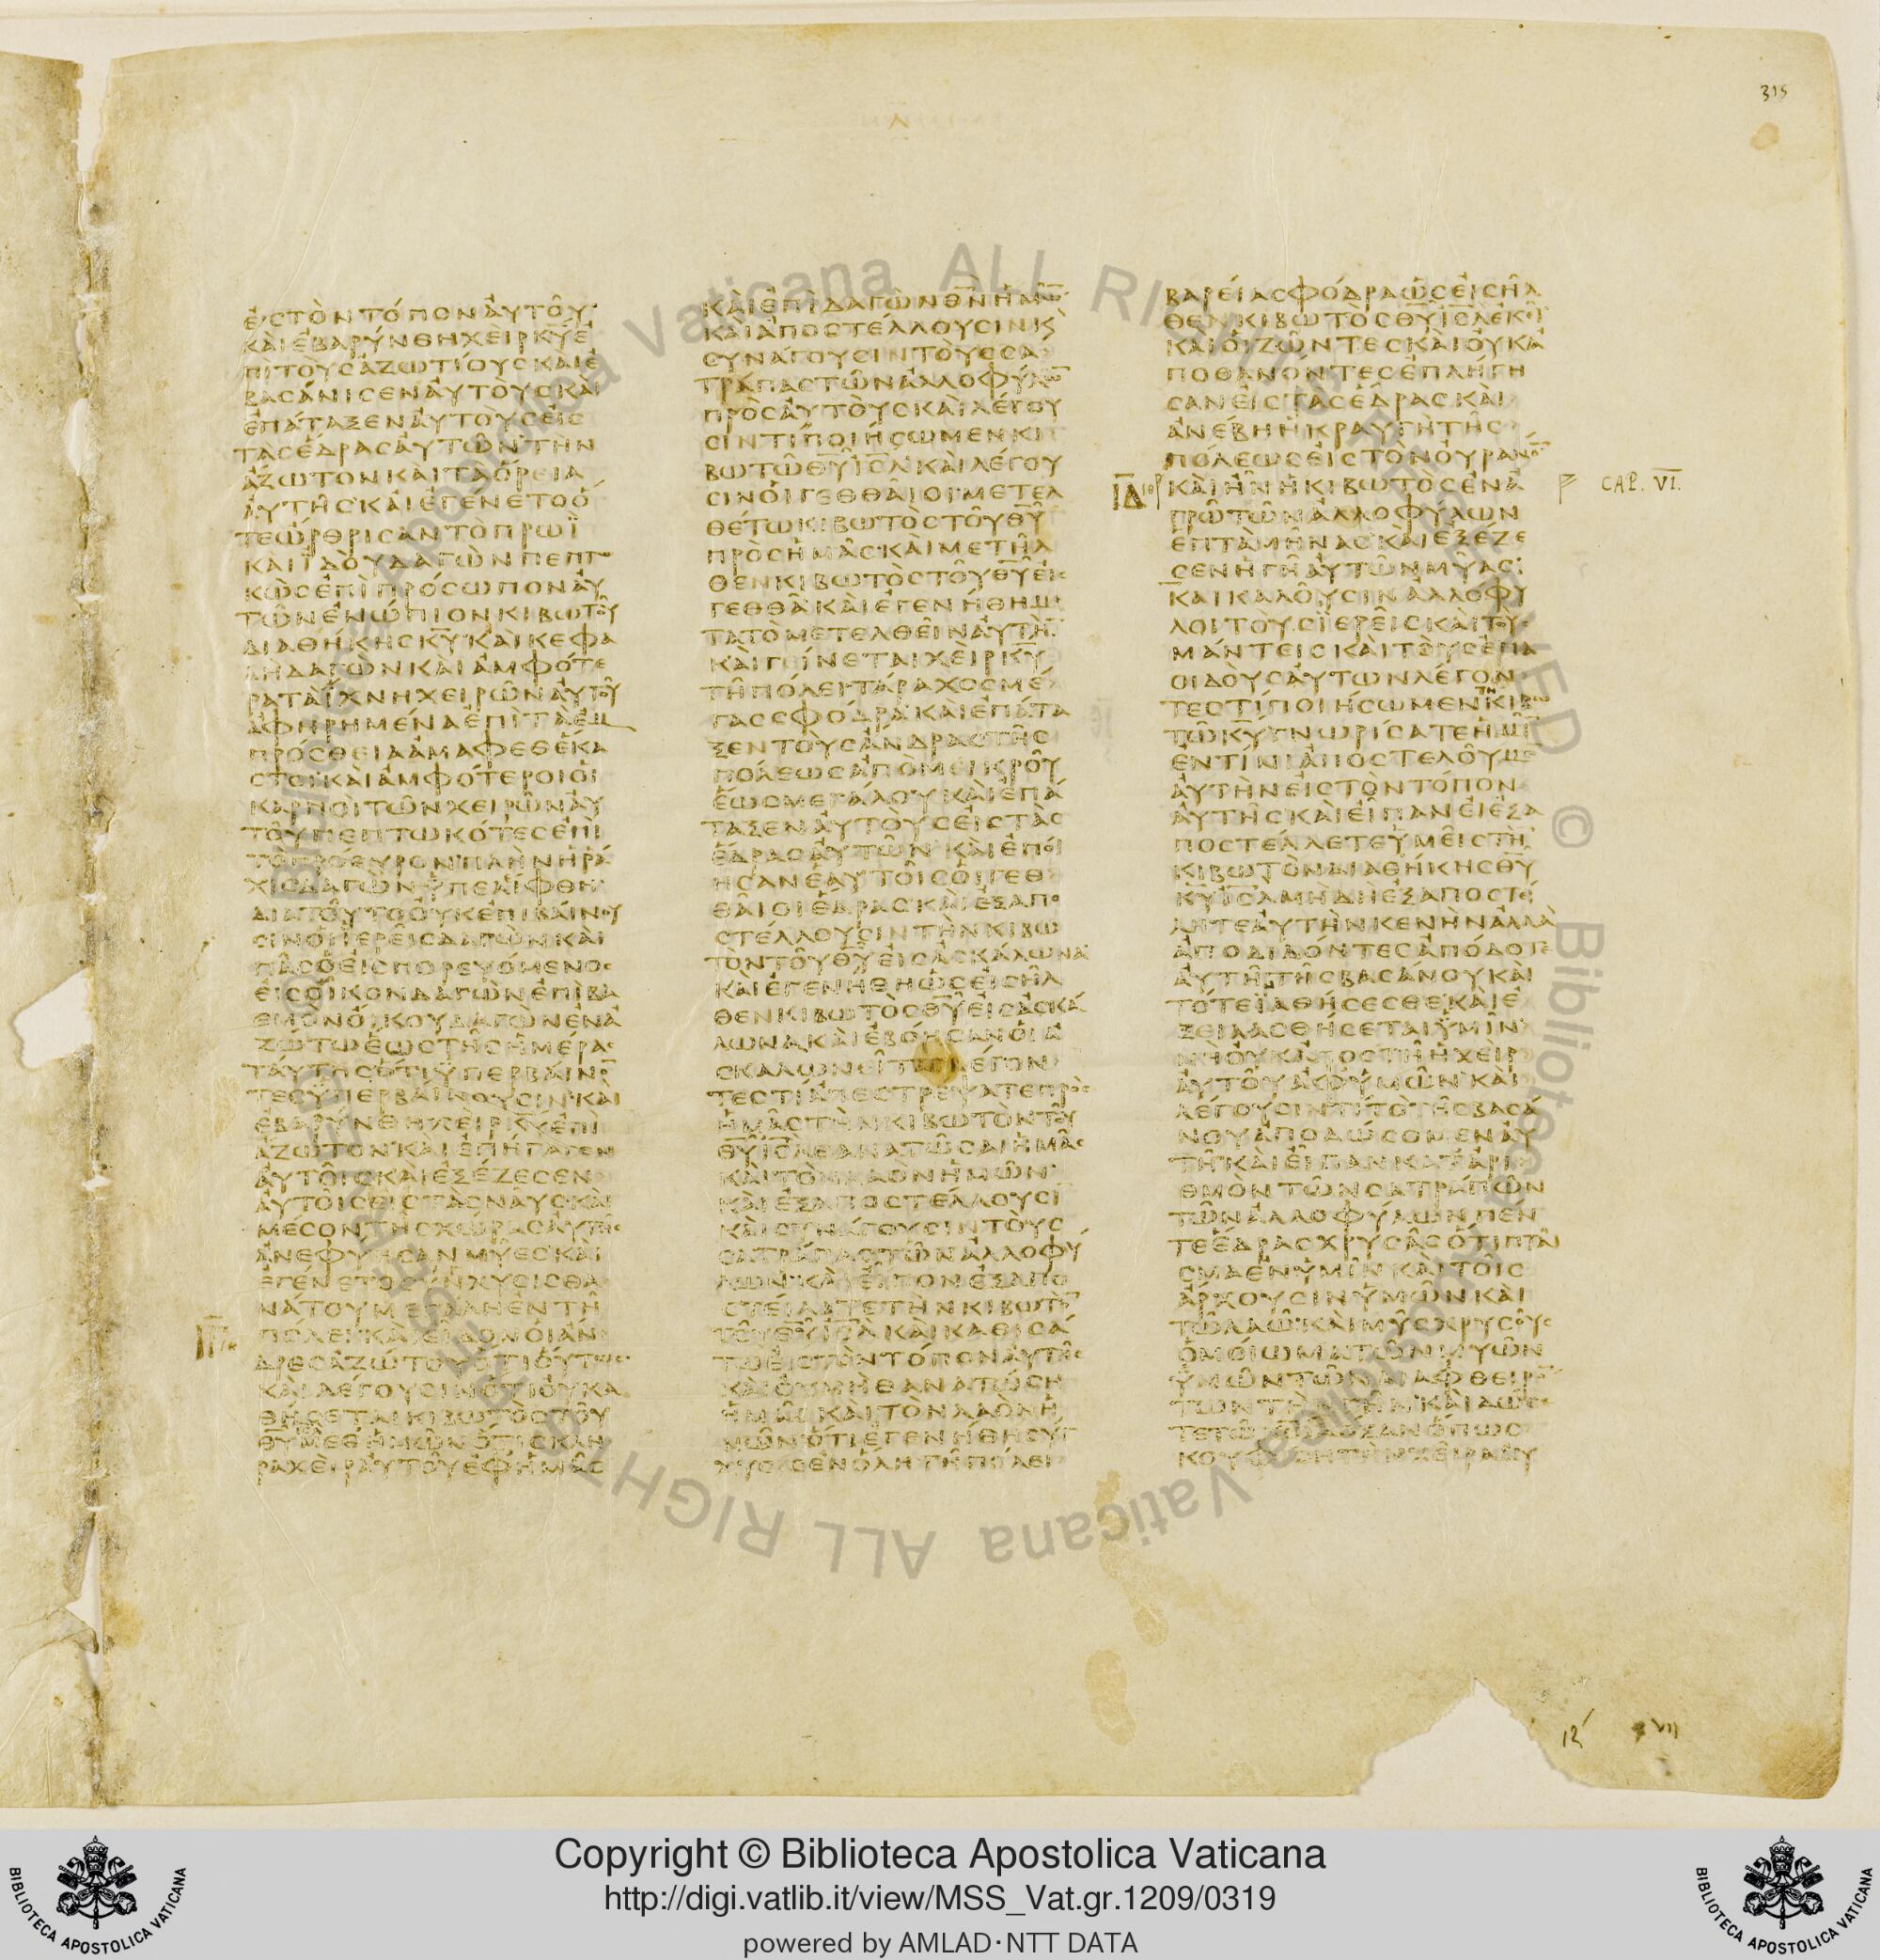 315
ΕΙΣΤΟΝΤΟΠΟΝΑΥΤΟΥ
ΚΑΙΕΒΑΡΥΝΘΗΧΕΙΡΚΥΕ
ΠΙΤΟΥΣΑΖΩΤΙΟΥΣΚΑΙΕ
ΒΑΣΑΝΙΣΕΝΑΥΤΟΥΣΚΑΙ
ΕΠΑΤΑΞΕΝΑΥΤΟΥΣΕΙΣ
ΤΑΣΕΔΡΑΣΑΥΤΩΝΤΗΝ
ΑΖΩΤΟΝΚΑΙΤΑΟΡΕΙΑ
ΑΥΤΗΣΚΑΙΕΓΕΝΕΤΟΟ
ΤΕΩΡΘΡΙΣΑΝΤΟΠΡΩΪ
ΚΑΙΙΔΟΥΔΑΓΩΝΠΕΠΤ
ΚΩΣΕΠΙΠΡΟΣΩΠΟΝΑΥ
ΤΩΝΕΝΩΠΙΟΝΚΙΒΩΤΟΥ
ΔΙΑΘΗΚΗΣΚΥΚΑΙΚΕΦΑ
ΛΗΔΑΓΩΝΚΑΙΑΜΦΟΤΕ
ΡΑΤΑΙΧΝΗΧΕΙΡΩΝΑΥΤΟΥ
ΑΦΗΡΗΜΕΝΑΕΠΙΤΑΕΜ
ΠΡΟΣΘΕΙΑΑΜΑΦΕΘΕΚΑ
ΣΤΟΙΚΑΙΑΜΦΟΤΕΡΟΙΟΙ
ΚΑΡΠΟΙΤΩΝΧΕΙΡΩΝΑΥ
ΤΟΥΠΕΠΤΩΚΟΤΕΣΕΠΙ
ΤΟΠΡΟΘΥΡΟΝΠΛΗΝΗΡΑ
ΧΙΣΔΑΓΩΝΥΠΕΛΙΦΘΗ
ΔΙΑΤΟΥΤΟΟΥΚΕΠΙΒΑΙΝΟΥ
ΣΙΝΟΙΙΕΡΕΙΣΔΑΓΩΝΚΑΙ
ΠΑΣΟΕΙΣΠΟΡΕΥΟΜΕΝΟΣ
ΕΙΣΟΙΚΟΝΔΑΓΩΝΕΠΙΒΑ
ΘΜΟΝΟΙΚΟΥΔΑΓΩΝΕΝΑ
ΖΩΤΩΕΩΣΤΗΣΗΜΕΡΑΣ
ΤΑΥΤΗΣΟΤΙΥΠΕΡΒΑΙΝΟ̅
ΤΕΣΥΠΕΡΒΑΙΝΟΥΣΙΝΚΑΙ
ΕΒΑΡΥΝΘΗΧΕΙΡΚΥΕΠΙ
ΑΖΩΤΟΝΚΑΙΕΠΗΓΑΓΕΝ
ΑΥΤΟΙΣΚΑΙΕΞΕΖΕΣΕΝ
ΑΥΤΟΙΣΕΙΣΤΑΣΝΑΥΣΚΑΙ
ΜΕΣΟΝΤΗΣΧΩΡΑΣΑΥΤΗΣ
ΑΝΕΦΥΗΣΑΝΜΥΕΣΚΑΙ
ΕΓΕΝΕΤΟΣΥΝΧΥΣΙΣΘΑ
ΝΑΤΟΥΜΕΓΑΛΗΕΝΤΗ
ΠΟΛΕΙΚΑΙΕΙΔΟΝΟΙΑΝ
ΔΡΕΣΑΖΩΤΟΥΟΤΙΟΥΤΩΣ
ΚΑΙΛΕΓΟΥΣΙΝΟΤΙΟΥΚΑ
ΘΗΣΕΤΑΙΚΙΒΩΤΟΣΤΟΥ
ΘΥΜΕΘΗΜΩΝΟΤΙΣΚΛΗ
ΡΑΧΕΙΡΑΥΤΟΥΕΦΗΜΑΣ
ΚΑΙΕΠΙΔΑΓΩΝΘΝΗΜΩ̅
ΚΑΙΑΠΟΣΤΕΛΛΟΥΣΙΝΚ
ΣΥΝΑΓΟΥΣΙΝΤΟΥΣΣΑ
ΤΡΑΠΑΣΤΩΝΑΛΛΟΦΥΛΩ̅
ΠΡΟΣΑΥΤΟΥΣΚΑΙΛΕΓΟΥ
ΣΙΝΤΙΠΟΙΗΣΩΜΕΝΚΙ
ΒΩΤΩΘΥΙΣΛΚΑΙΛΕΓΟΥ
ΣΙΝΟΙΓΕΘΘΑΙΟΙΜΕΤΕΛ
ΘΕΤΩΚΙΒΩΤΟΣΤΟΥΘΥ
ΠΡΟΣΗΜΑΣΚΑΙΜΕΤΗΛ
ΘΕΝΚΙΒΩΤΟΣΤΟΥΘΥΕΙΣ
ΓΕΘΘΑΚΑΙΕΓΕΝΗΘΗΜΕ
ΤΑΤΟΜΕΤΕΛΘΕΙΝΑΥΤΗ̅
ΚΑΙΓΕΙΝΕΤΑΙΧΕΙΡΚΥ
ΤΗΠΟΛΕΙΤΑΡΑΧΟΣΜΕ
ΓΑΣΣΦΟΔΡΑΚΑΙΕΠΑΤΑ
ΞΕΝΤΟΥΣΑΝΔΡΑΣΤΗΣ
ΠΟΛΕΩΣΑΠΟΜΕΙΚΡΟΥ
ΕΩΣΜΕΓΑΛΟΥΚΑΙΕΠΑ
ΤΑΞΕΝΑΥΤΟΥΣΕΙΣΤΑΣ
ΕΔΡΑΣΑΥΤΩΝΚΑΙΕΠΟΙ
ΗΣΑΝΕΑΥΤΟΙΣΟΙΓΕΘ
ΘΑΙΟΙΕΔΡΑΣΚΑΙΕΞΑΠΟ
ΣΤΕΛΛΟΥΣΙΝΤΗΝΚΙΒΩ
ΤΟΝΤΟΥΘΥΕΙΣΑΣΚΑΛΩΝΑ
ΚΑΙΕΓΕΝΗΘΗΩΣΕΙΣΗΛ
ΘΕΝΚΙΒΩΤΟΣΘΥΕΙΣΑΣΚΑ
ΛΩΝΑΚΑΙΕΒΟΗΣΑΝΟΙΑ
ΣΚΑΛΩΝΕΙΤΑΙΛΕΓΟΝ
ΤΕΣΤΙΑΠΕΣΤΡΕΨΑΤΕΠΡΟΣ
ΗΜΑΣΤΗΝΚΙΒΩΤΟΝΤΟΥ
ΘΥΙΣΛΘΑΝΑΤΩΣΑΙΗΜΑΣ
ΚΑΙΤΟΝΛΑΟΝΗΜΩΝ
ΚΑΙΕΞΑΠΟΣΤΕΛΛΟΥΣΙ
ΚΑΙΣΥΝΑΓΟΥΣΙΝΤΟΥΣ
ΣΑΤΡΑΠΑΣΤΩΝΑΛΛΟΦΥ
ΛΩΝΚΑΙΕΙΠΟΝΕΞΑΠΟ
ΣΤΕΙΛΑΤΕΤΗΝΚΙΒΩΤΟ̅
ΤΟΥΘΥΙΣΛΚΑΙΚΑΘΙΣΑ
ΤΩΕΙΣΤΟΝΤΟΠΟΝΑΥΤΗΣ
ΚΑΙΟΥΜΗΘΑΝΑΤΩΣΗ
ΗΜΑΣΚΑΙΤΟΝΛΑΟΝΗ
ΜΩΝΟΤΙΕΓΕΝΗΘΗΣΥΓ
ΧΥΣΙΣΕΝΟΛΗΤΗΠΟΛΕΙ
ΒΑΡΕΙΑΣΦΟΔΡΑΩΣΕΙΣΗΛ
ΘΕΝΚΙΒΩΤΟΣΘΥΙΣΛΕΚΕΙ
ΚΑΙΟΙΖΩΝΤΕΣΚΑΙΟΥΚΑ
ΠΟΘΑΝΟΝΤΕΣΕΠΛΗΓΗ
ΣΑΝΕΙΣΤΑΣΕΔΡΑΣΚΑΙ
ΑΝΕΒΗΗΚΡΑΥΓΗΤΗΣ
ΠΟΛΕΩΣΕΙΣΤΟΝΟΥΡΑΝΟ̅
ΙΔ ΚΑΙΗΝΗΚΙΒΩΤΟΣΕΝΑ CAP. VI.
ΓΡΩΤΩΝΑΛΛΟΦΥΛΩΝ
ΕΠΤΑΜΗΝΑΣΚΑΙΕΞΕΖΕ
ΣΕΝΗΓΗΑΥΤΩΝΜΥΑΣ
ΚΑΙΚΑΛΟΥΣΙΝΑΛΛΟΦΥ
ΛΟΙΤΟΥΣΙΕΡΕΙΣΚΑΙΤΟΥΣ
ΜΑΝΤΕΙΣΚΑΙΤΟΥΣΕΠΑ
ΟΙΔΟΥΣΑΥΤΩΝΛΕΓΟΝ
ΤΕΣΤΙΠΟΙΗΣΩΜΕΝΤΗΚΙΒΩ
ΤΩΚΥΓΝΩΡΙΣΑΤΕΗΜΙ̅
ΕΝΤΙΝΙΑΠΟΣΤΕΛΟΥΜΕ
ΑΥΤΗΝΕΙΣΤΟΝΤΟΠΟΝ
ΑΥΤΗΣΚΑΙΕΙΠΑΝΕΙΕΞΑ
ΠΟΣΤΕΛΛΕΤΕΥΜΕΙΣΤΗ̅
ΚΙΒΩΤΟΝΔΙΑΘΗΚΗΣΘΥ
ΚΥΙΣΛΜΗΔΗΕΞΑΠΟΣΤΕΙ
ΛΗΤΕΑΥΤΗΝΚΕΝΗΝΑΛΛΑ
ΑΠΟΔΙΔΟΝΤΕΣΑΠΟΔΟΤΕ
ΑΥΤΗΤΗΣΒΑΣΑΝΟΥΚΑΙ
ΤΟΤΕΙΑΘΗΣΕΣΘΕΚΑΙΕ
ΞΕΙΛΑΣΘΗΣΕΤΑΙΥΜΙΝ
ΜΗΟΥΚΑΠΟΣΤΗΗΧΕΙΡ
ΑΥΤΟΥΑΦΥΜΩΝΚΑΙ
ΛΕΓΟΥΣΙΝΤΙΤΟΤΗΣΒΑΣΑ
ΝΟΥΑΠΟΔΩΣΟΜΕΝΑΥ
ΤΗΚΑΙΕΙΠΑΝΚΑΤΑΡΙ
ΘΜΟΝΤΩΝΣΑΤΡΑΠΩΝ
ΤΩΝΑΛΛΟΦΥΛΩΝΠΕΝ
ΤΕΕΔΡΑΣΧΡΥΣΑΣΟΤΙΠΤΑΙ
ΣΜΑΕΝΥΜΙΝΚΑΙΤΟΙΣ
ΑΡΧΟΥΣΙΝΥΜΩΝΚΑΙ
ΤΩΛΑΩΚΑΙΜΥΣΧΡΥΣΟΥΣ
ΟΜΟΙΩΜΑΤΩΝΜΥΩΝ
ΥΜΩΝΤΩΝΔΙΑΦΘΕΙΡΟ̅
ΤΩΝΤΗΝΓΗΝΚΑΙΔΩΣΕ
ΤΕΤΩΚΩΔΟΞΑΝΟΠΩΣ
ΚΟΥΦΙΣΗΤΗΝΧΕΙΡΑΑΥ
Copyright © Biblioteca Apostolica Vaticana
http://digi.vatlib.it/view/MSS_Vat.gr.1209/0319
powered by AMLAD·NTT DATA